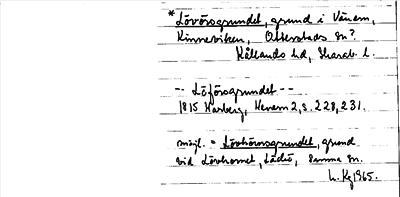 * Lövörsgrundet, grund i Vänern,
Kinneviken, Otterstads sn?
Kållands hd, Skarab. l.
-- Löförsgrundet --
1815 Marberg, Wenern 2, s. 228, 231.
möjl. = Lövhornsgrundet, grund
vid Lövhornet, Läckö, samma sn.
1965.